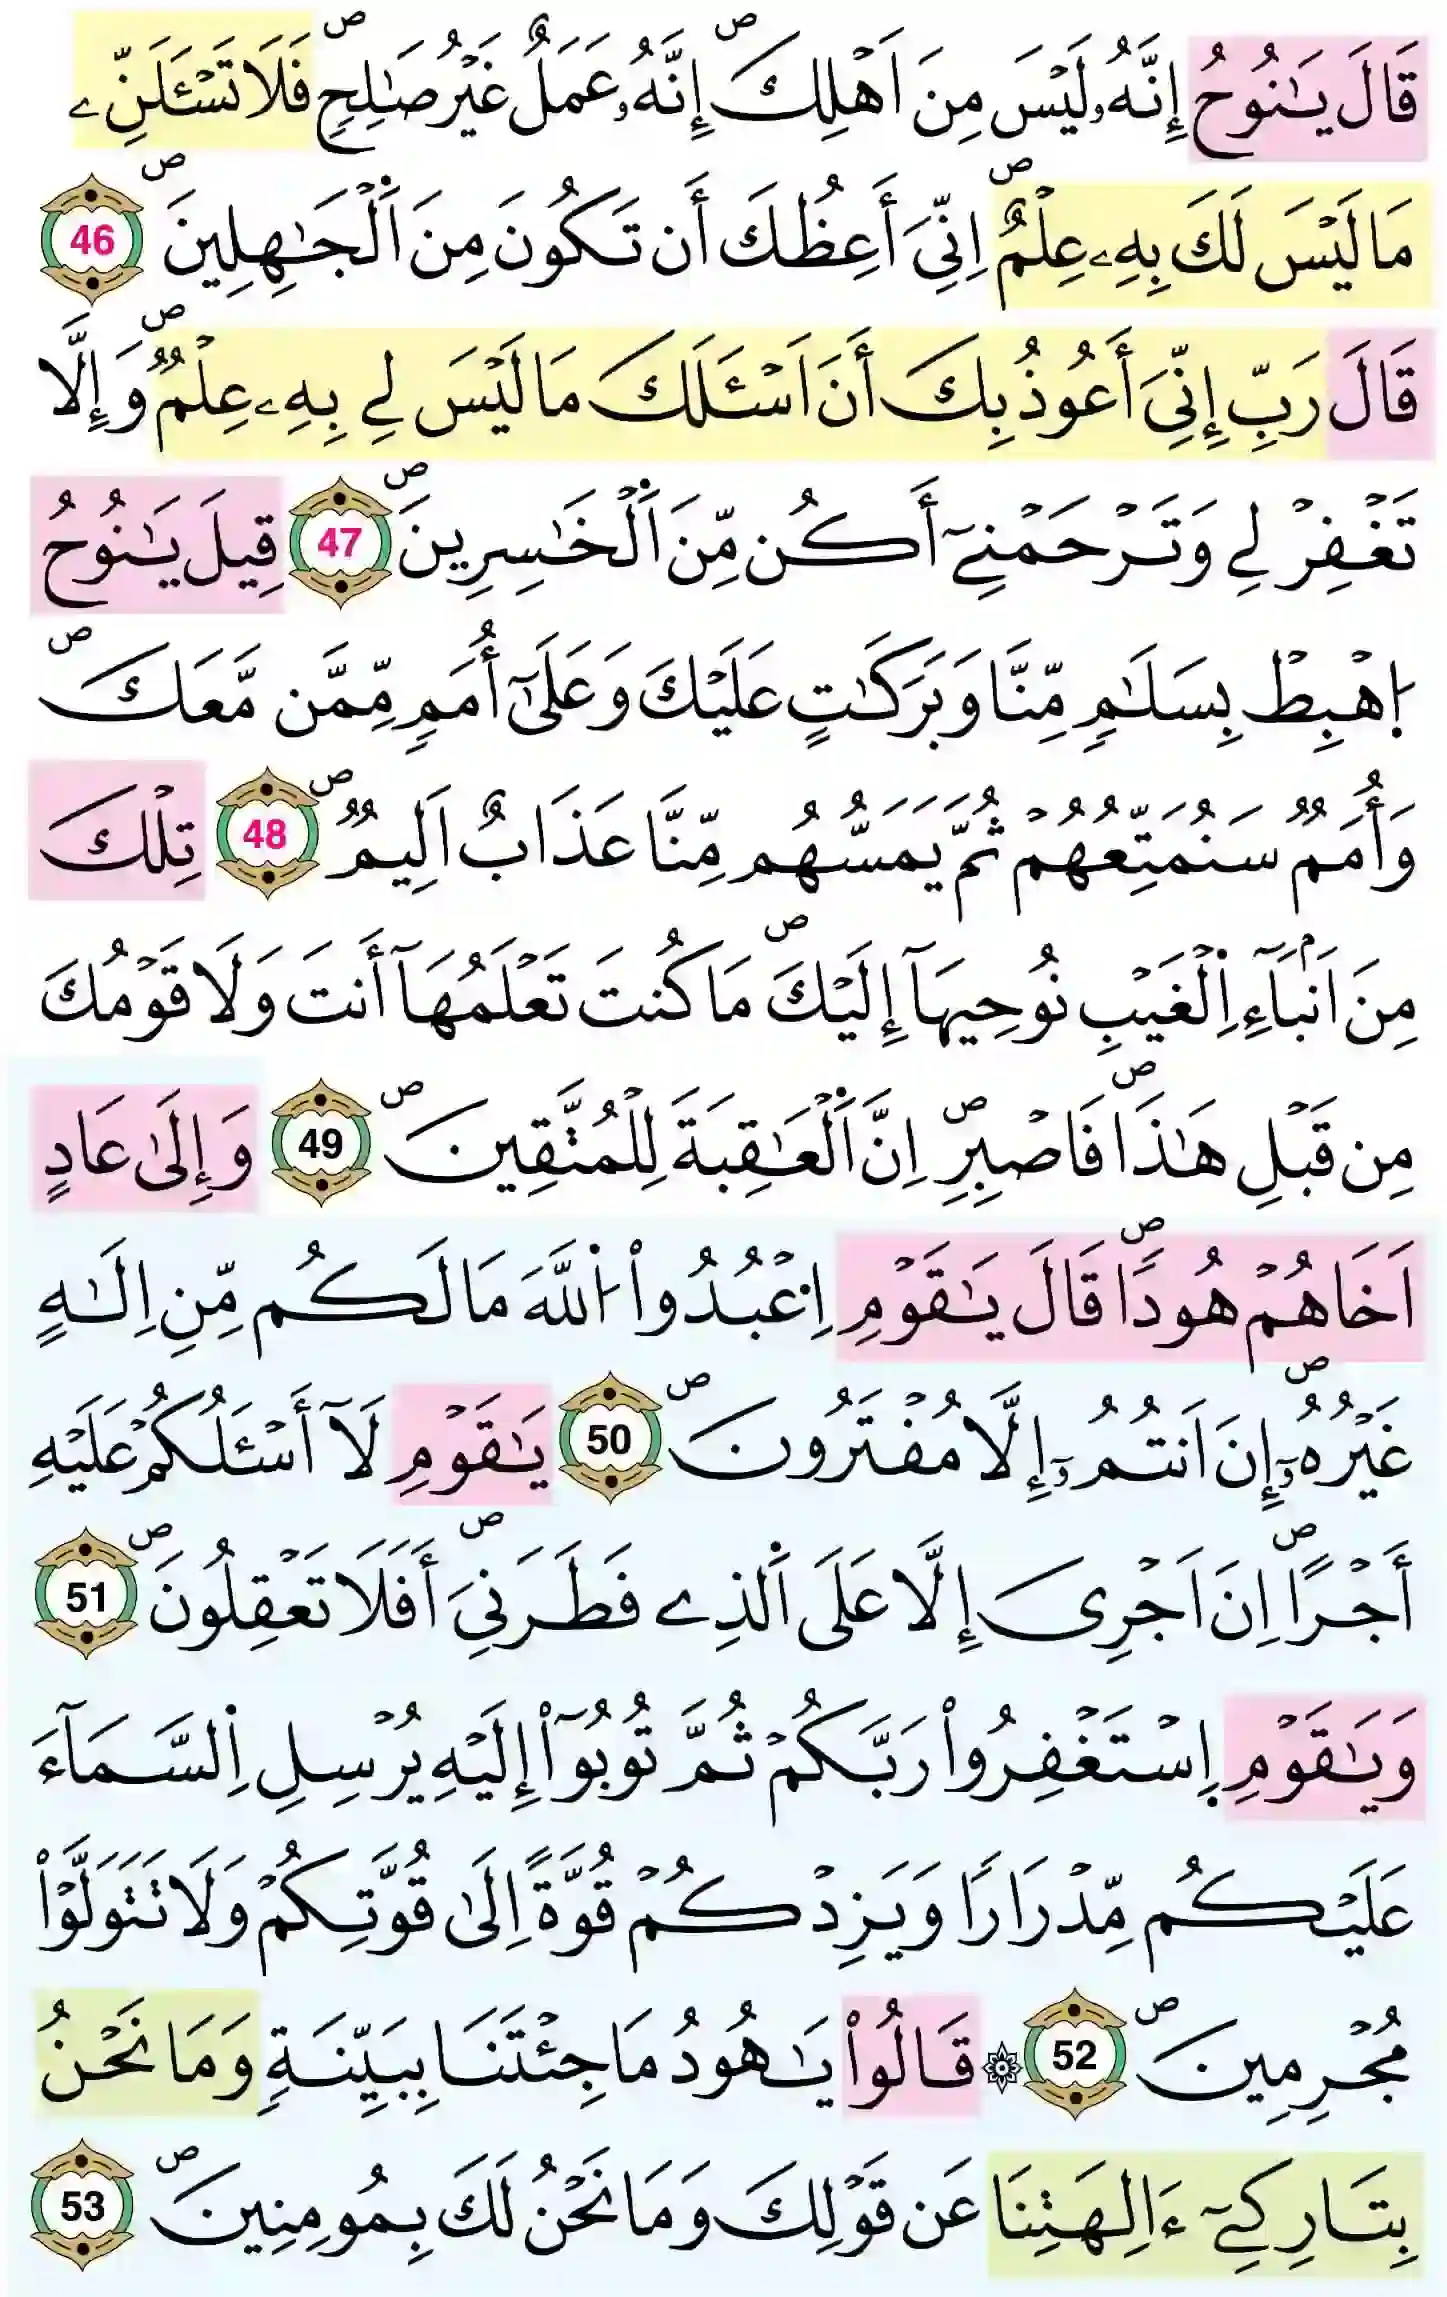 قَالَ يَٰنُوحُ إِنَّهُۥ لَيْسَ مِنَ اَهْلِكَۖ إِنَّهُۥ عَمَلٌ غَيْرُ صَٰلِحٖۖ فَلَا تَسْـَٔلَنِّے
مَا لَيْسَ لَكَ بِهِۦ عِلْمٌۖ اِنِّيَ أَعِظُكَ أَن تَكُونَ مِنَ اَ۬لْجَٰهِلِينَۖ 46
قَالَ رَبِّ إِنِّيَ أَعُوذُ بِكَ أَنَ اَسْـَٔلَكَ مَا لَيْسَ لِے بِهِۦ عِلْمٞۖ وَإِلَّا
تَغْفِرْ لِے وَتَرْحَمْنِےٓ أَكُن مِّنَ اَ۬لْخَٰسِرِينَۖ 47 قِيلَ يَٰنُوحُ
اُ۪هْبِطْ بِسَلَٰمٖ مِّنَّا وَبَرَكَٰتٍ عَلَيْكَ وَعَلَىٰٓ أُمَمٖ مِّمَّن مَّعَكَۖ
وَأُمَمٞ سَنُمَتِّعُهُمْ ثُمَّ يَمَسُّهُم مِّنَّا عَذَابٌ اَلِيمٞۖ 48 تِلْكَ
مِنَ اَنۢبَآءِ اِ۬لْغَيْبِ نُوحِيهَآ إِلَيْكَۖ مَا كُنتَ تَعْلَمُهَآ أَنتَ وَلَا قَوْمُكَ
مِن قَبْلِ هَٰذَاۖ فَاصْبِرِۖ اِنَّ اَ۬لْعَٰقِبَةَ لِلْمُتَّقِينَۖ 49 وَإِلَىٰ عَادٍ
اَخَاهُمْ هُوداٗۖ قَالَ يَٰقَوْمِ اِ۟عْبُدُواْ اُ۬للَّهَ مَا لَكُم مِّنِ اِلَٰهٍ
غَيْرُهُۥٓۖ إِنَ اَنتُمُۥٓ إِلَّا مُفْتَرُونَۖ 50 يَٰقَوْمِ لَآ أَسْـَٔلُكُمْ عَلَيْهِ
أَجْراًۖ اِنَ اَجْرِيَ إِلَّا عَلَى اَ۬لذِے فَطَرَنِيَۖ أَفَلَا تَعْقِلُونَۖ 51
وَيَٰقَوْمِ اِ۪سْتَغْفِرُواْ رَبَّكُمْ ثُمَّ تُوبُوٓاْ إِلَيْهِ يُرْسِلِ اِ۬لسَّمَآءَ
عَلَيْكُم مِّدْرَاراٗ وَيَزِدْكُمْ قُوَّةً اِلَىٰ قُوَّتِكُمْ وَلَا تَتَوَلَّوْاْ
مُجْرِمِينَۖ 52 ۞ قَالُواْ يَٰهُودُ مَا جِئْتَنَا بِبَيِّنَةٖ وَمَا نَحْنُ
بِتَارِكِےٓ ءَالِهَتِنَا عَن قَوْلِكَ وَمَا نَحْنُ لَكَ بِمُومِنِينَۖ 53